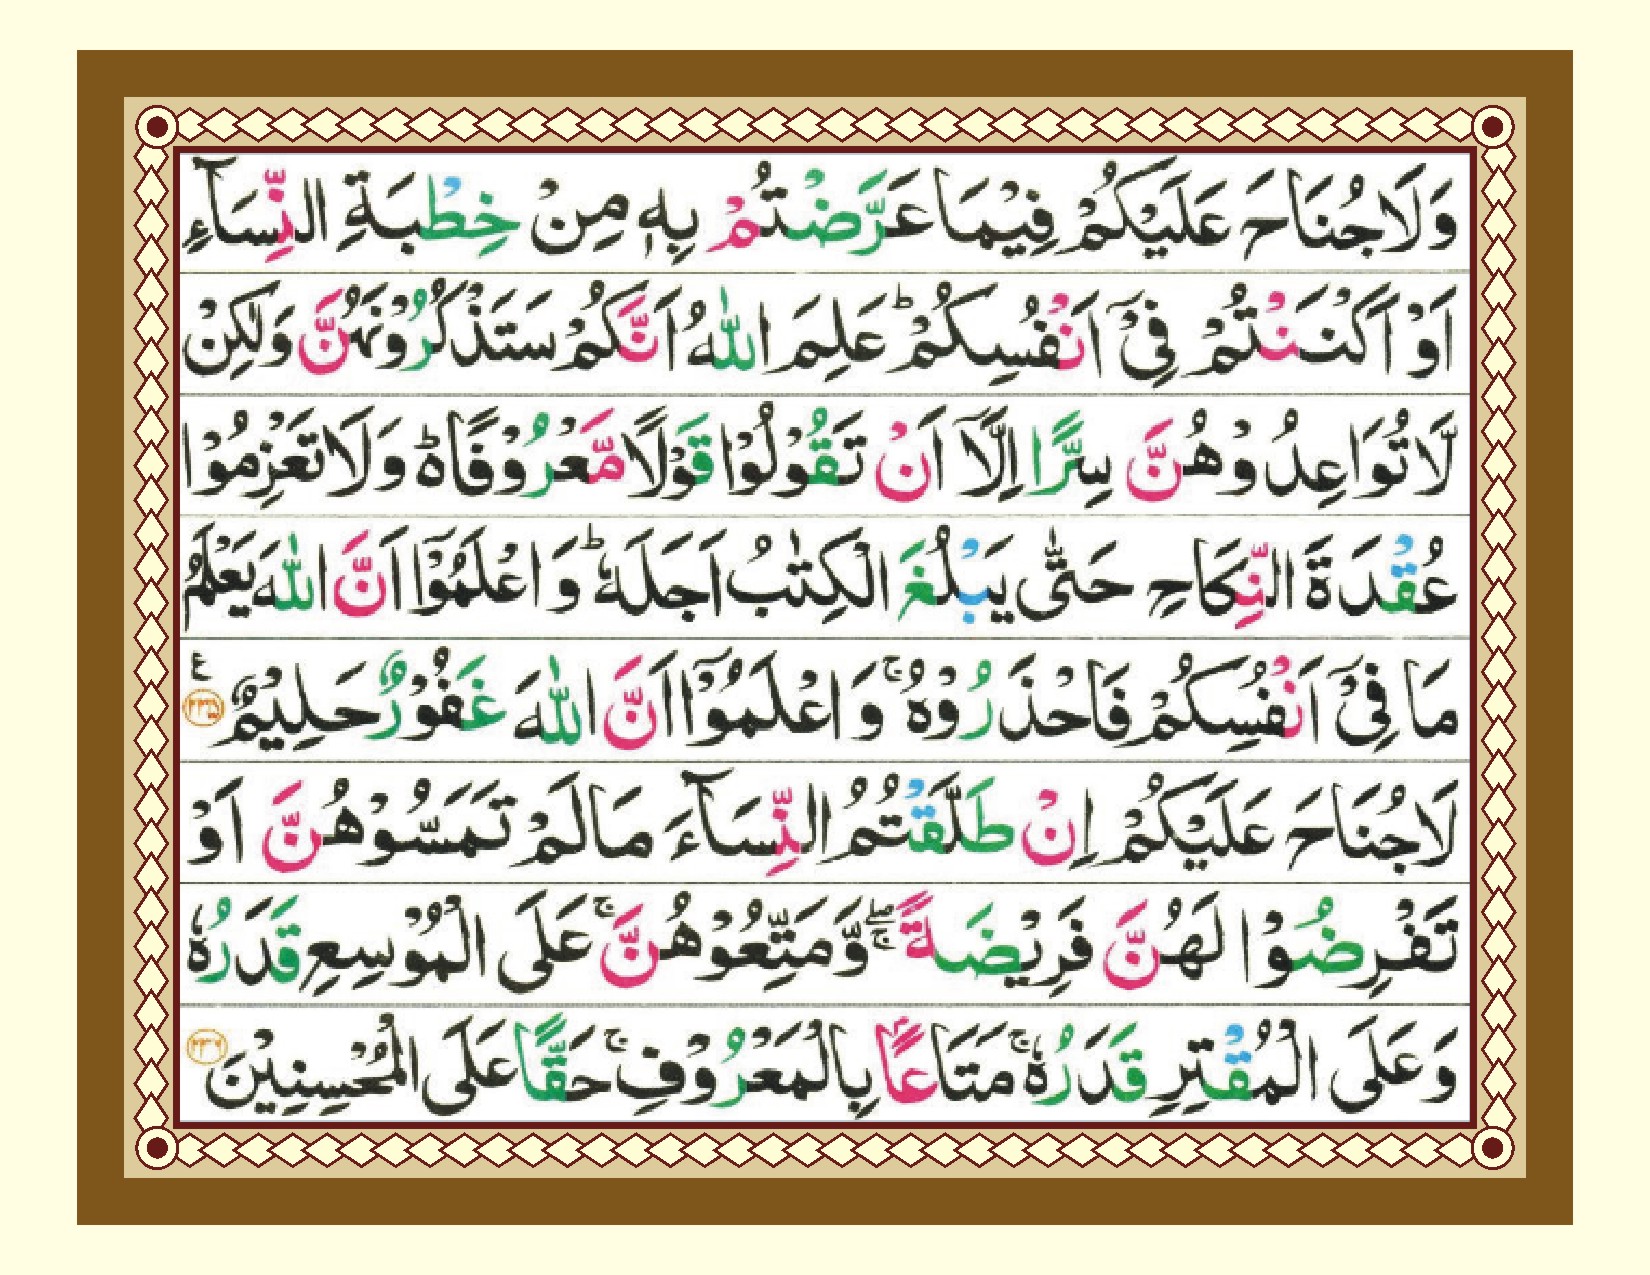 وَلَا جُنَاحَ عَلَيْكُمْ فِيْمَا عَرَّضْتُمْ بِهٖ مِنْ خِطْبَةِ النِّسَآءِ
اَوْ اَكْنَنْتُمْ فِيْٓ اَنْفُسِكُمْ ؕ عَلِمَ اللّٰهُ اَنَّكُمْ سَتَذْكُرُوْنَهُنَّ وَلٰكِنْ
لَّا تُوَاعِدُوْهُنَّ سِرًّا اِلَّآ اَنْ تَقُوْلُوْا قَوْلًا مَّعْرُوْفًا ۬ؕ وَلَا تَعْزِمُوْا
عُقْدَةَ النِّكَاحِ حَتّٰى يَبْلُغَ الْكِتٰبُ اَجَلَهٗ ؕ وَاعْلَمُوْٓا اَنَّ اللّٰهَ يَعْلَمُ
مَا فِيْٓ اَنْفُسِكُمْ فَاحْذَرُوْهُ ۚ وَاعْلَمُوْٓا اَنَّ اللّٰهَ غَفُوْرٌ حَلِيْمٌ ۝۲۳۵ ع
لَا جُنَاحَ عَلَيْكُمْ اِنْ طَلَّقْتُمُ النِّسَآءَ مَا لَمْ تَمَسُّوْهُنَّ اَوْ
تَفْرِضُوْا لَهُنَّ فَرِيْضَةً ۖۚ وَّمَتِّعُوْهُنَّ ۚ عَلَى الْمُوْسِعِ قَدَرُهٗ
وَعَلَى الْمُقْتِرِ قَدَرُهٗ ۚ مَتَاعًۢا بِالْمَعْرُوْفِ ۚ حَقًّا عَلَى الْمُحْسِنِيْنَ ۝۲۳۶